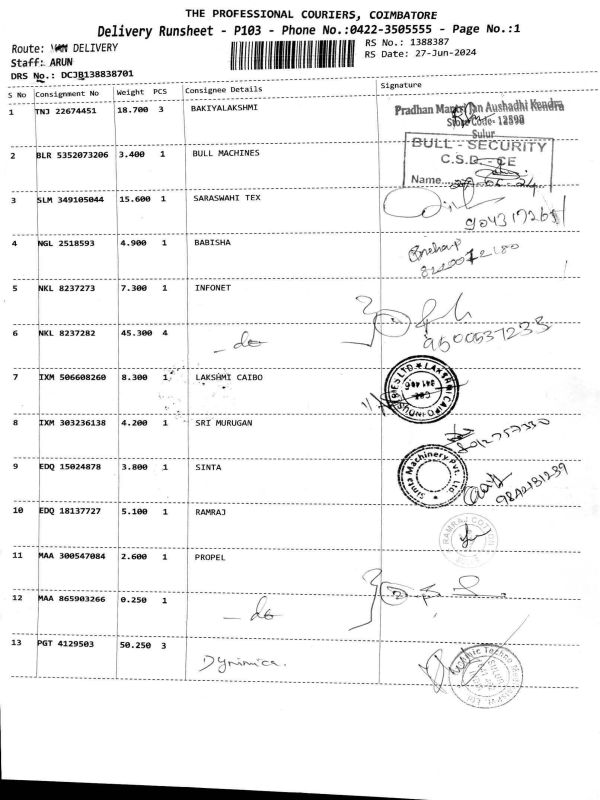 THE PROFESSIONAL COURIERS, COIMBATORE
Delivery Runsheet - P103 - Phone No.:0422-3505555 - Page No.:1
Route: DELIVERY
RS No.: 1388387
Staff: ARUN
RS Date: 27-Jun-2024
DRS No.: DCJB138838701
S No Consignment No Weight PCS Consignee Details Signature
1 TNJ 22674451 18.700 3 BAKIYALAKSHMI
Pradhan Mantri Jan Aushadhi Kendra
Store Code- 12390
Sulur
2 BLR 5352073206 3.400 1 BULL MACHINES
BULL - SECURITY
C.S.D. - CE
Name....
3 SLM 349105044 15.600 1 SARASWAHI TEX
9043172671
4 NGL 2518593 4.900 1 BABISHA
8220072180
5 NKL 8237273 7.300 1 INFONET
6 NKL 8237282 45.300 4 - do
9500537233
7 IXM 506608260 8.300 1 LAKSHMI CAIBO
LAKSHMI CAIRO INDUSTRIES LTD
8 IXM 303236138 4.200 1 SRI MURUGAN
9 EDQ 15024878 3.800 1 SINTA
Simta Machinery Pvt. Ltd
10 EDQ 18137727 5.100 1 RAMRAJ
RAMRAJ COTTON
11 MAA 300547084 2.600 1 PROPEL
12 MAA 865903266 0.250 1 - do
13 PGT 4129503 50.250 3 Dynimica.